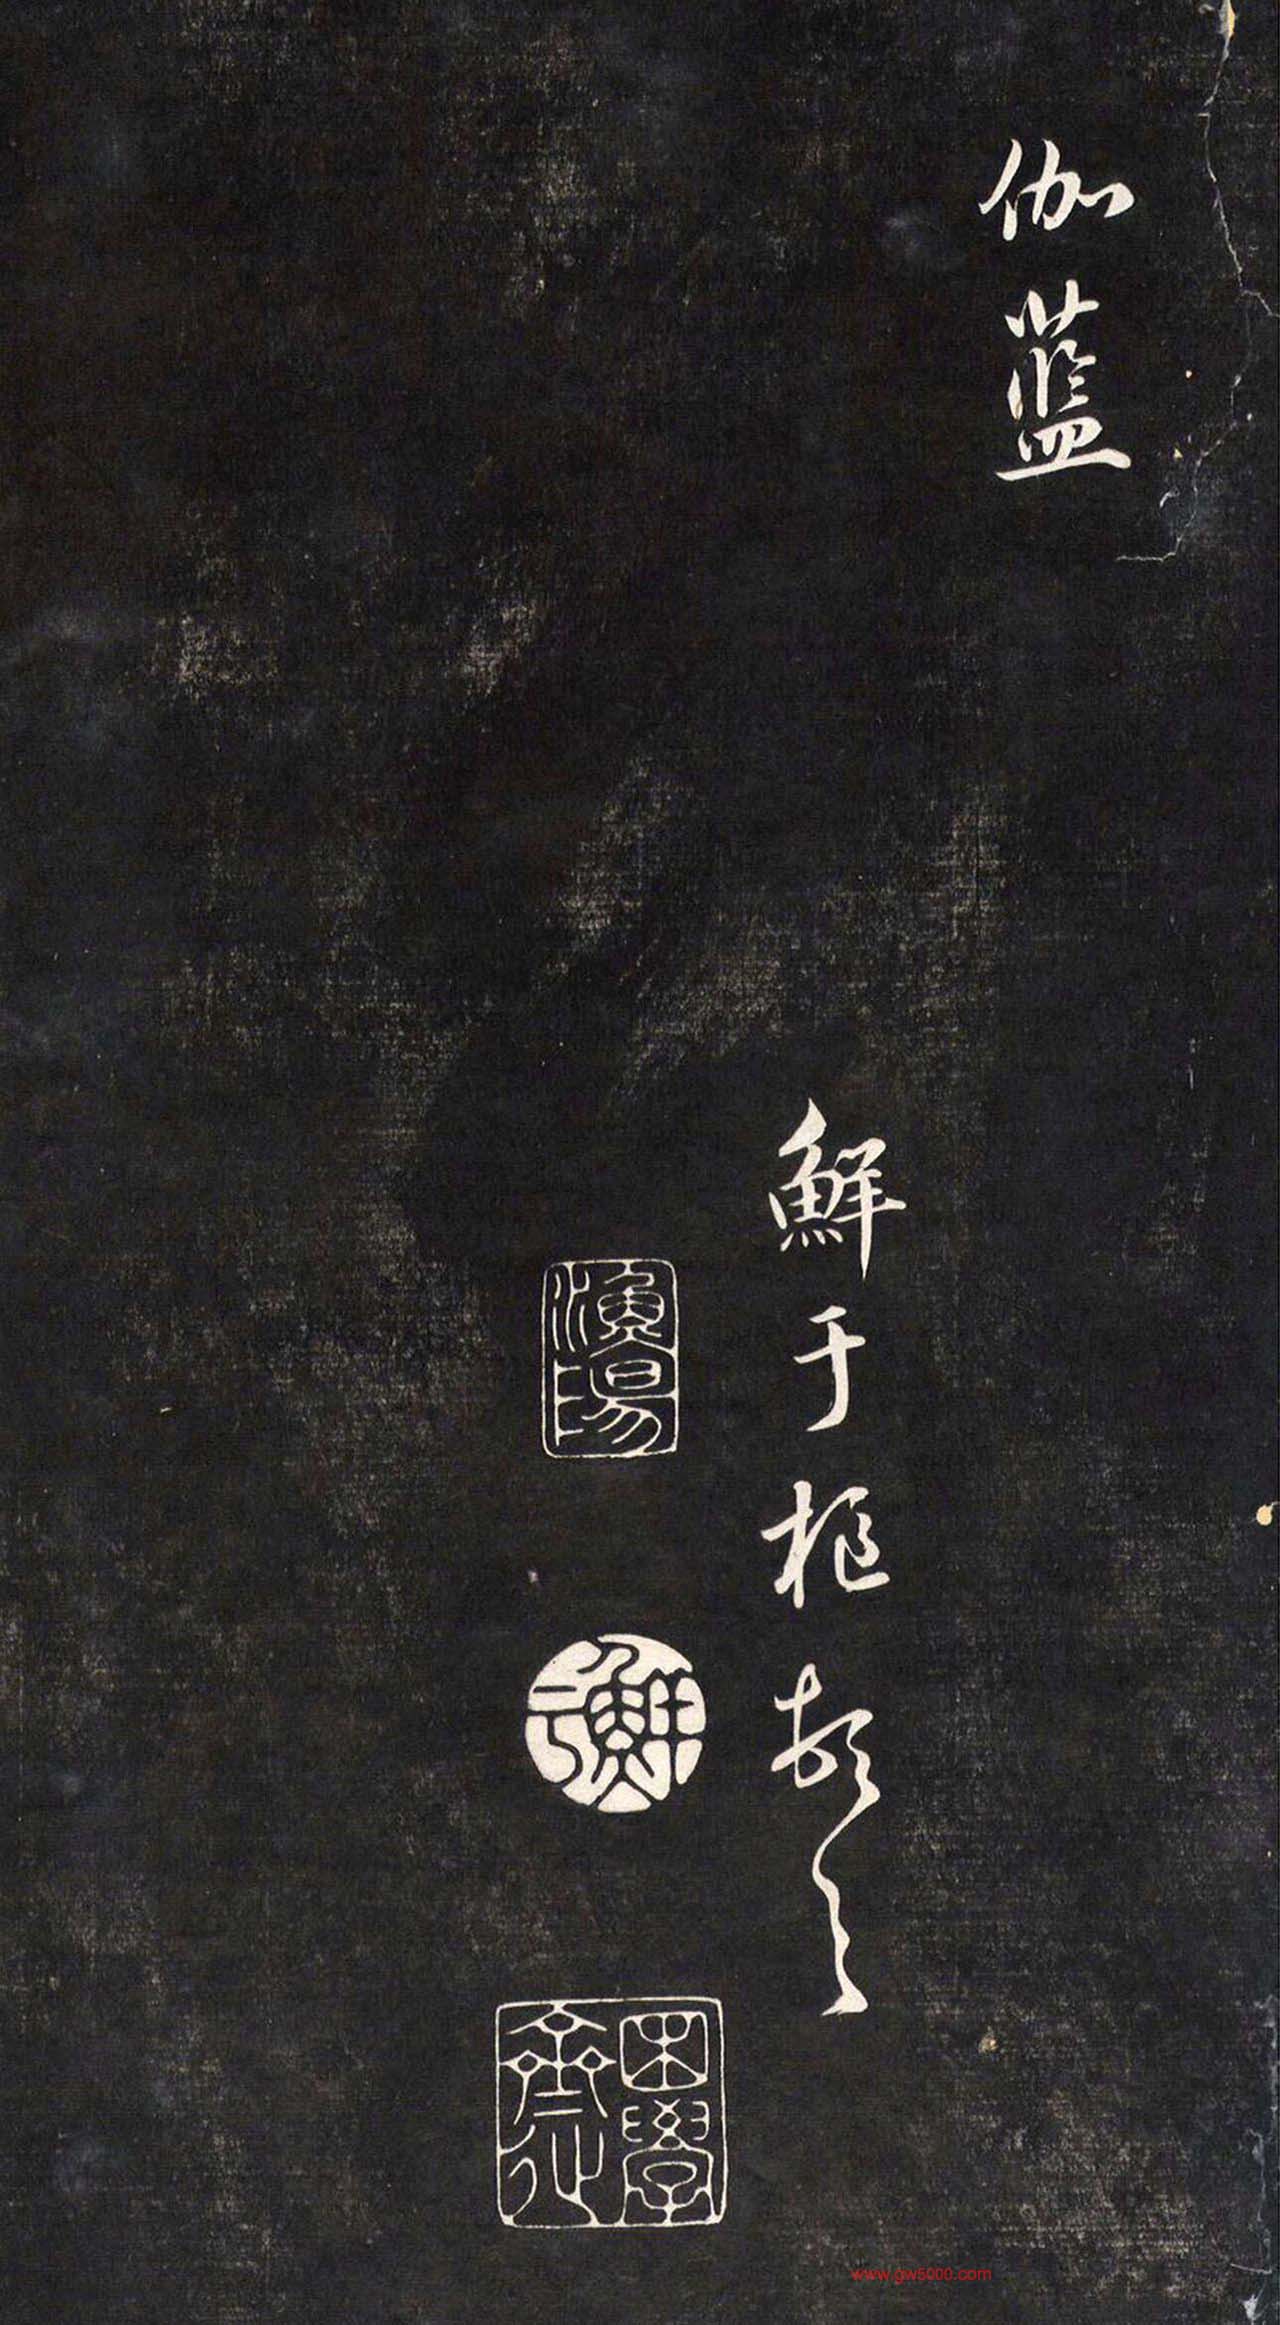 伽藍
鮮于枢頓首
漁陽
鮮于
困學齋
www.gw5000.com